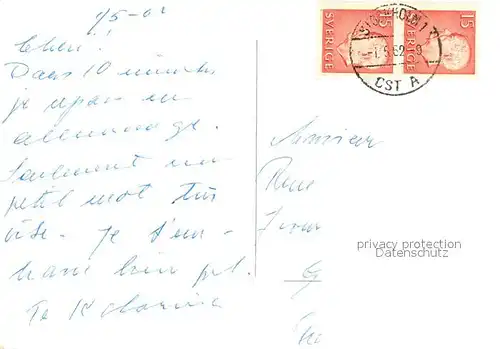 1/5-62
Cheri!
Dans 10 minutes
je repars en
allemagne.
Seulement un
petit mot très
vite. Je t'em-
brasse bien fort.
Ta Katarina
SVERIGE 15
SVERIGE 15
STOCKHOLM 1
-1.5.62
CST A
Monsieur
Rene
privacy protection
Datenschutz